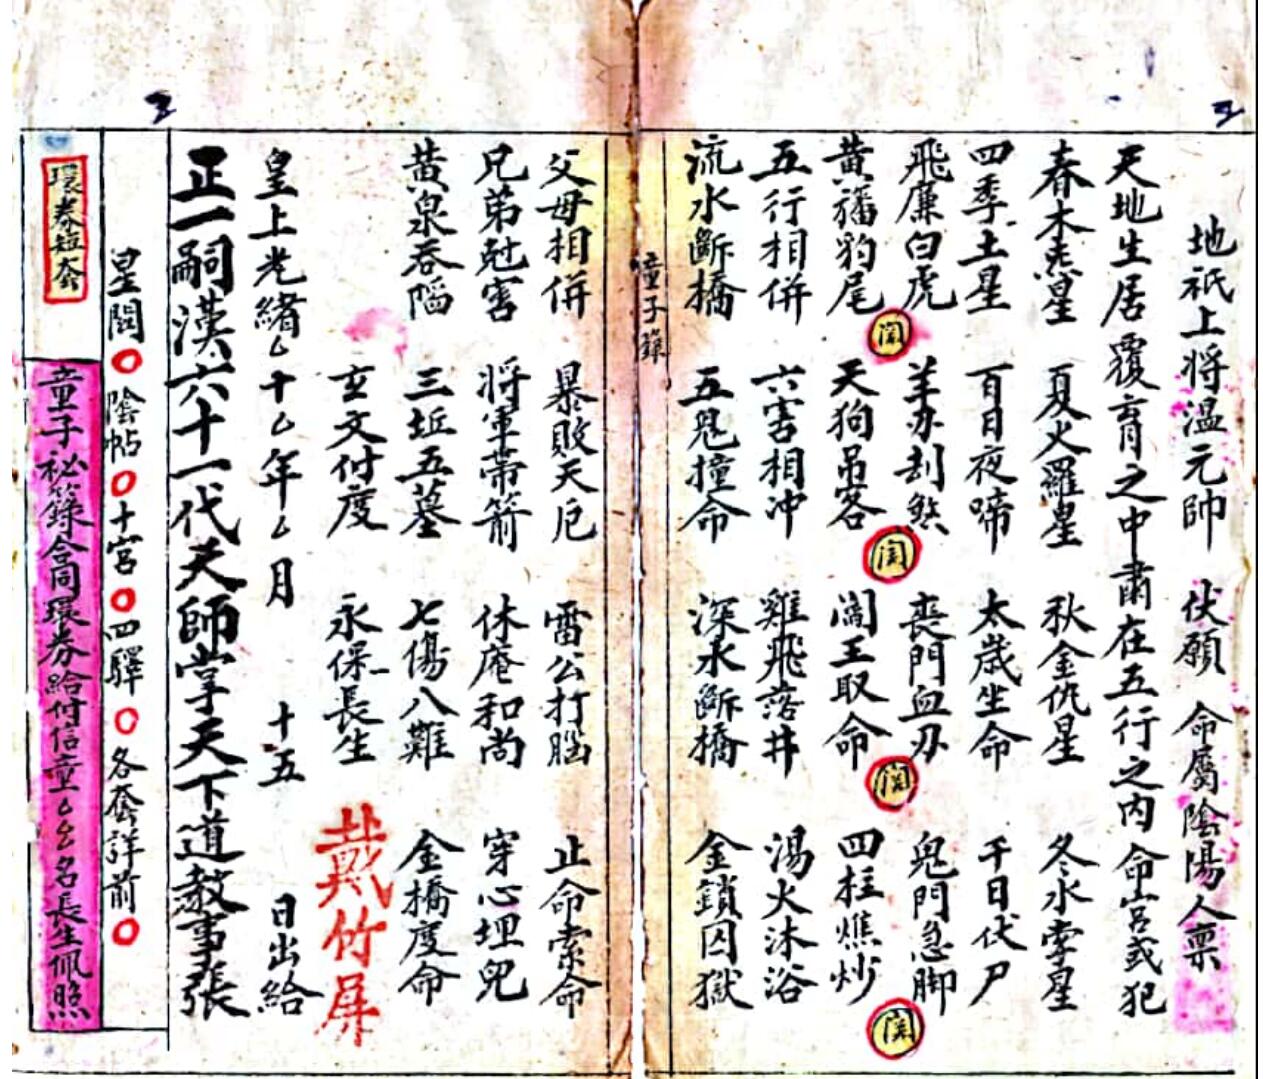 地祇上将温元帥 伏願 命屬陰陽人稟
天地生居覆育之中肅在五行之内命宫或犯
春木炁星 夏火羅星 秋金仇星 冬水孛星
四季土星 百日夜啼 太歲坐命 千日伏尸
飛廉白虎 羊刃刦煞 喪門血刃 鬼門急脚
黄旛豹尾 天狗吊客 閻王取命 四柱燋炒
關 關 關 關
五行相併 六害相冲 雞飛落井 湯火沐浴
流水斷橋 五鬼撞命 深水斷橋 金鎖囚獄
童子籙
父母相併 暴敗天厄 雷公打腦 止命索命
兄弟尅害 将軍帶箭 休庵和尚 穿心埋兒
黄泉吞陷 三坵五墓 七傷八難 金橋度命
玄文付度 永保長生
戴竹屏
皇上光緒厶十厶年厶月 十五 日出給
正一嗣漢六十一代天師掌天下道教事張
星閣〇陰帖〇十宫〇四驛〇各套詳前〇
環券短套
童子祕籙合同環券給付信童厶厶名長生佩照